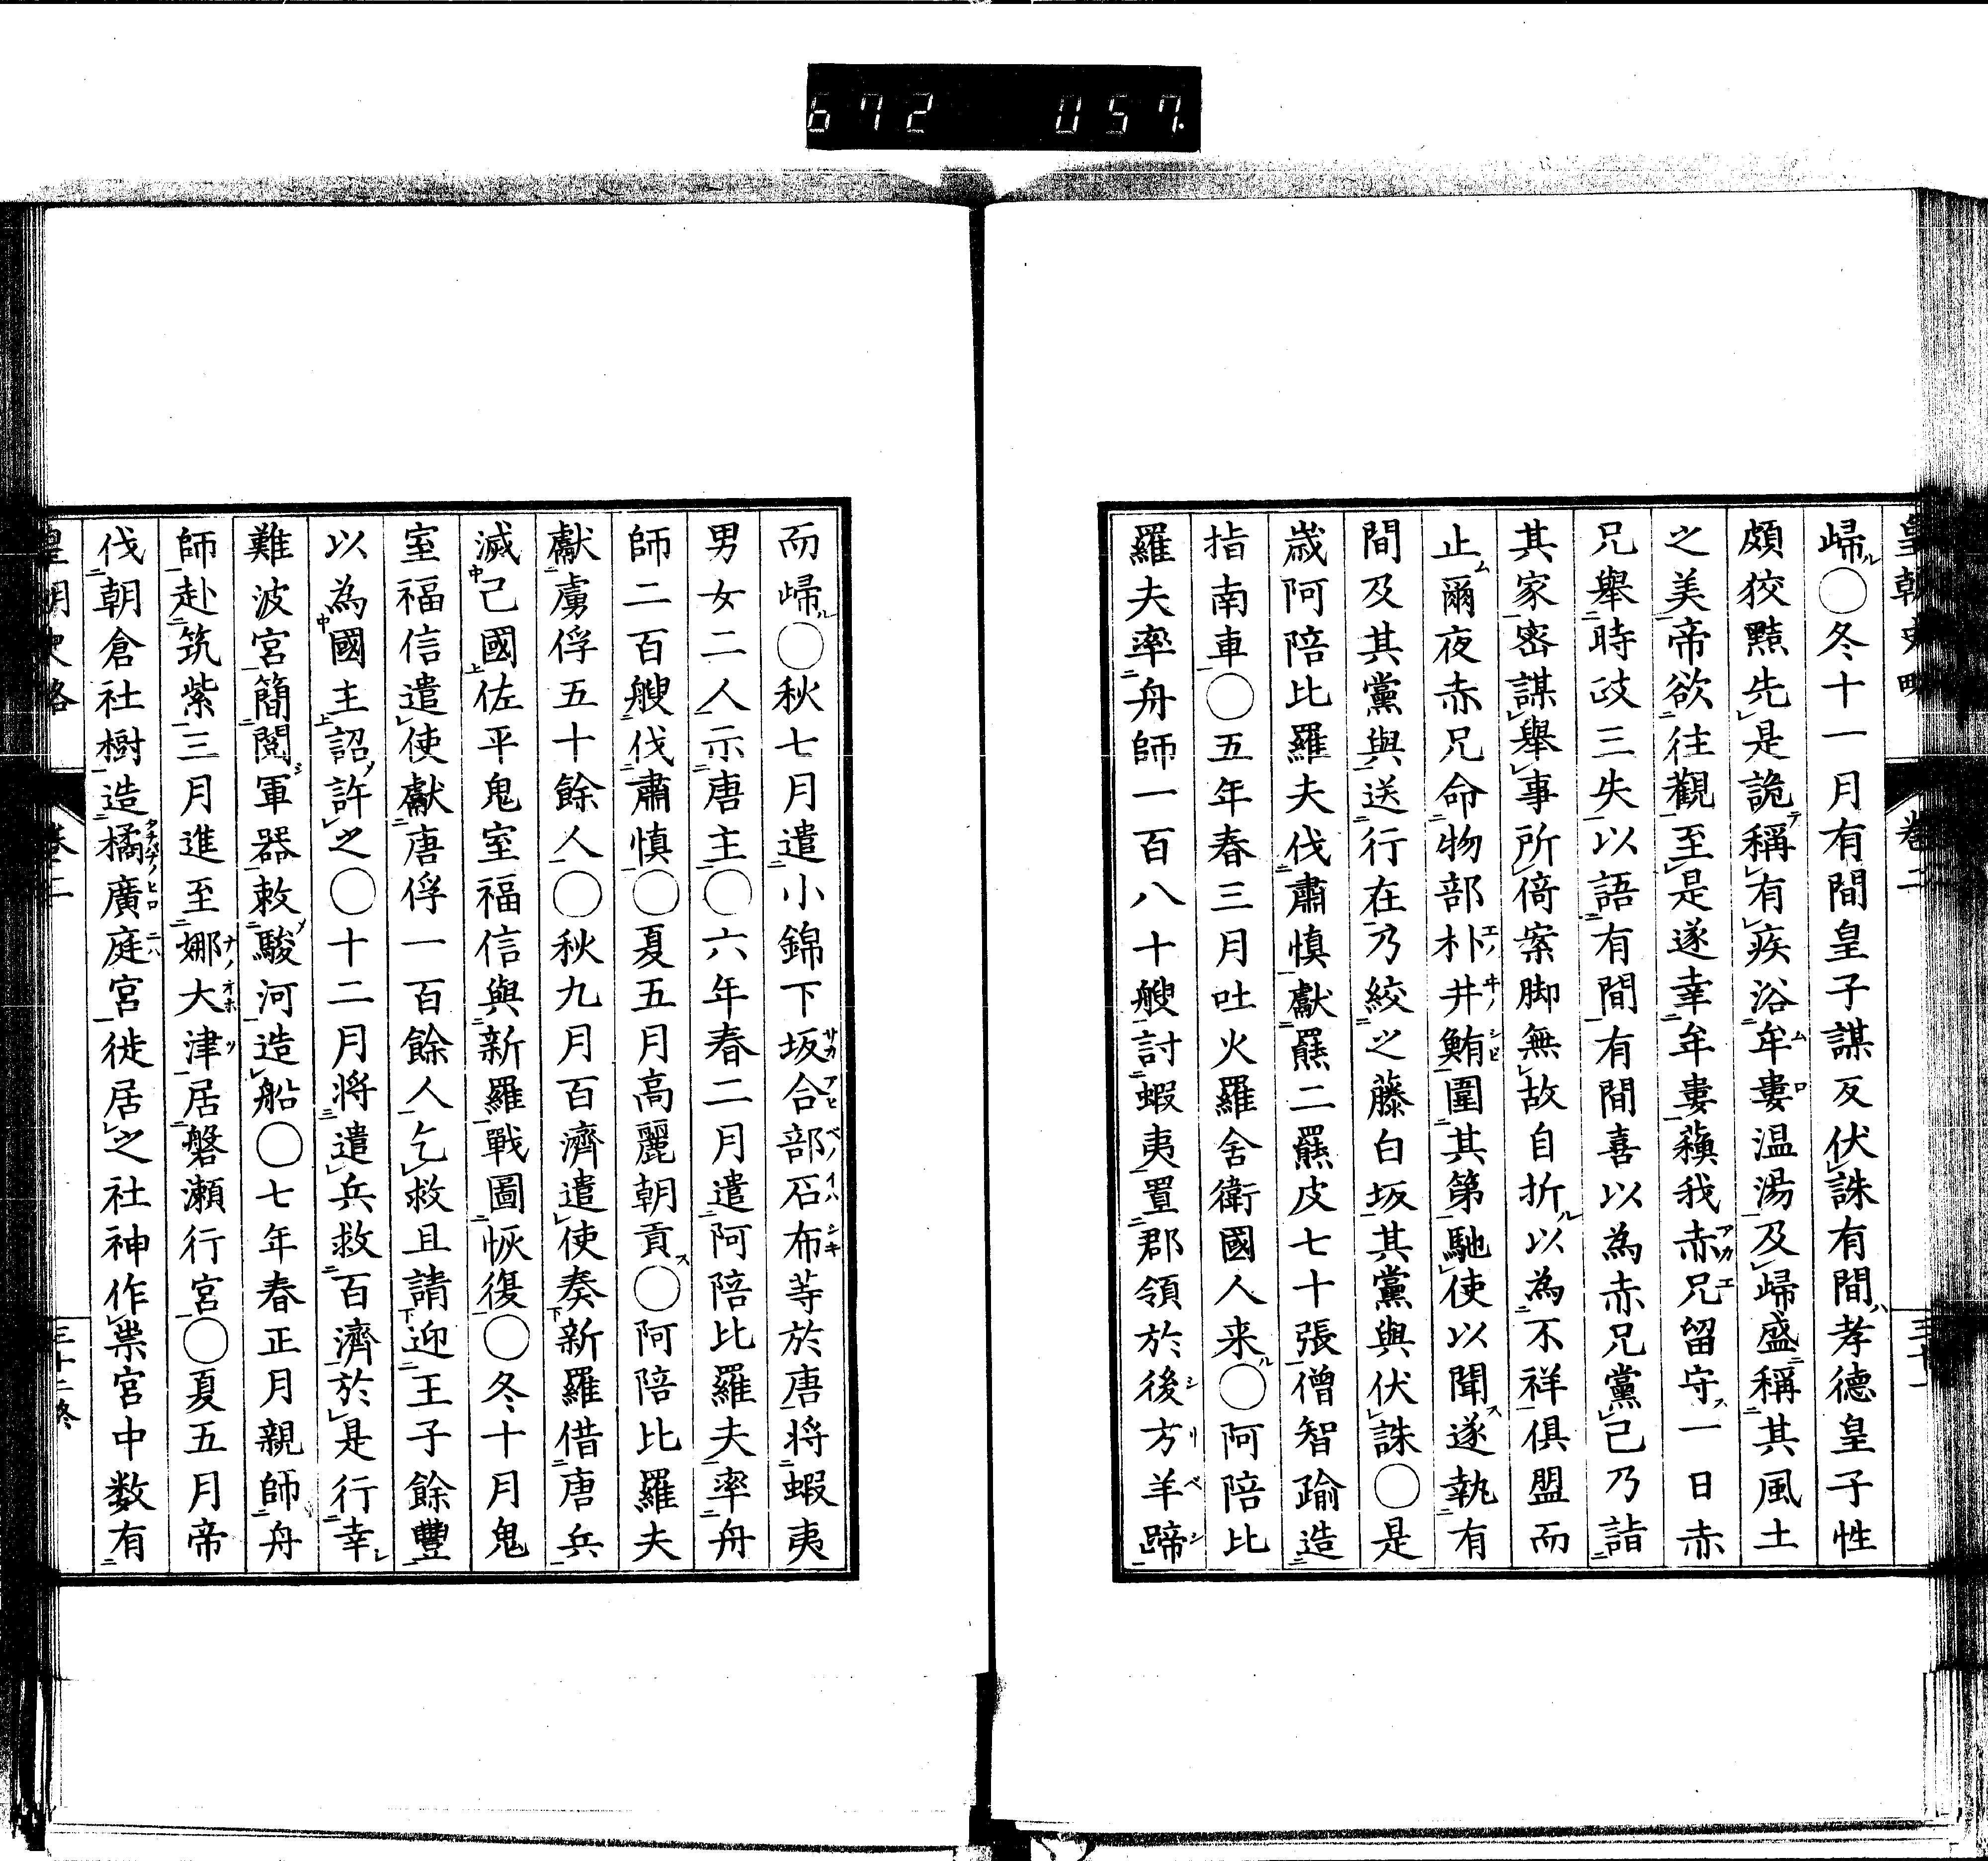 672 057
皇朝史略 卷二 三十一
歸○冬十一月有間皇子謀反伏誅有間孝德皇子性
頗狡黠先是詭稱有疾浴牟婁温湯及歸盛稱其風土
之美帝欲往觀至是遂幸牟婁蘓我赤兄留守一日赤
兄舉時政三失以語有間有間喜以為赤兄黨己乃詣
其家密謀舉事所倚案脚無故自折以為不祥俱盟而
止爾夜赤兄命物部朴井鮪圍其第馳使以聞遂執有
間及其黨與送行在乃絞之藤白坂其黨與伏誅○是
歲阿陪比羅夫伐肅慎獻羆二羆皮七十張僧智踰造
指南車○五年春三月吐火羅舍衛國人来○阿陪比
羅夫率舟師一百八十艘討蝦夷置郡領於後方羊蹄
而歸○秋七月遣小錦下坂合部石布等於唐將蝦夷
男女二人示唐主○六年春二月遣阿陪比羅夫率舟
師二百艘伐肅慎○夏五月高麗朝貢○阿陪比羅夫
獻虜俘五十餘人○秋九月百濟遣使奏新羅借唐兵
滅己國佐平鬼室福信與新羅戰圖恢復○冬十月鬼
室福信遣使獻唐俘一百餘人乞救且請迎王子餘豐
以為國主詔許之○十二月将遣兵救百濟於是行幸
難波宮簡閲軍器敕駿河造船○七年春正月親師舟
師赴筑紫三月進至娜大津居磐瀬行宮○夏五月帝
伐朝倉社樹造橘廣庭宮徙居之社神作祟宮中数有
皇朝史略 卷二 三十二終